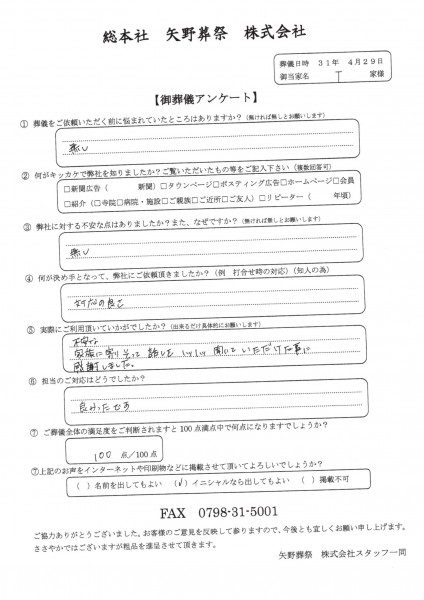 総本社 矢野葬祭 株式会社
葬儀日時 31年 4月29日
御当家名 T 家様
【御葬儀アンケート】
① 葬儀をご依頼いただく前に悩まれていたところはありますか？（無ければ無しとお願いします）
無し
② 何がキッカケで弊社を知りましたか？ご覧いただいたもの等をご記入下さい（複数回答可）
□新聞広告（ 新聞）□タウンページ□ポスティング広告□ホームページ□会員
□紹介（□寺院□病院・施設□ご親族□ご近所□ご友人）□リピーター（ 年頃）
③ 弊社に対する不安な点はありましたか？また、なぜですか？（無ければ無しとお願いします）
無し
④ 何が決め手となって、弊社にご依頼頂きましたか？（例 打合せ時の対応）（知人の為）
対応の良さ
⑤ 実際にご利用頂いていかがでしたか？（出来るだけ具体的にお願いします）
家族に寄りそって 話しを 聞いて いただけた事に
感謝しました。
⑥ 担当のご対応はどうでしたか？
良かったです
⑦ ご葬儀全体の満足度をご判断されますと100点満点中で何点になりますでしょうか？
100 点/100点
⑦上記のお声をインターネットや印刷物などに掲載させて頂いてよろしいでしょうか？
（ ）名前を出してもよい （✓）イニシャルなら出してもよい （ ）掲載不可
FAX 0798-31-5001
ご協力ありがとうございました。お客様のご意見を反映して参りますので、今後とも宜しくお願い申し上げます。
ささやかではございますが粗品を進呈させて頂きます。
矢野葬祭 株式会社スタッフ一同